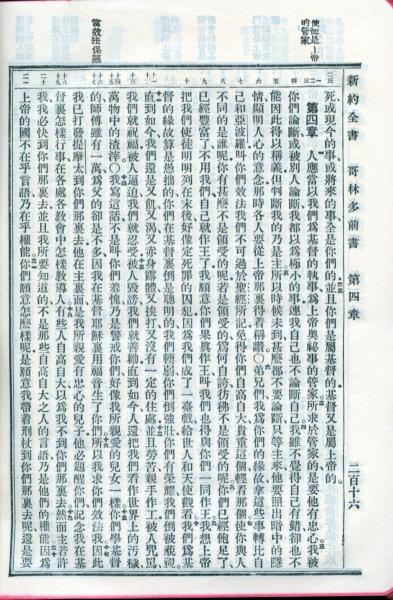 新約全書 哥林多前書 第四章 二百十六
使徒是上帝的管家
當效法保羅
死或現今的事或將來的事全是你們的並且你們是屬基督的基督又是屬上帝的
第四章 人應當以我們爲基督的執事爲上帝奧祕事的管家所求於管家的是要他有忠心我被
你們論斷或被別人論斷我都以爲極小的事連我自己也不論斷自己我雖不覺得自己有錯卻也不
能因此得以稱義但判斷我的乃是主所以時候未到甚麼都不要論斷只等主來他要照出暗中的隱
情顯明人心的意念那時各人要從上帝那裏得着稱讚○弟兄們我爲你們的緣故拿這些事轉比自
己和亞波羅叫你們效法我們不可過於聖經所記免得你們自高自大貴重這個輕看那個使你與人
不同的是誰呢你有甚麼不是領受的呢若是領受的爲何自誇彷彿不是領受的呢你們已經飽足了
已經豐富了不用我們自己就作王了我願意你們果眞作王叫我們也得與你們一同作王我想上帝
把我們使徒明明列在末後好像定死罪的囚犯因爲我們成了一臺戲給世人和天使觀看我們爲基
督的緣故算是愚拙的你們在基督裏倒是聰明的我們輭弱你們倒強壯你們有榮耀我們倒被藐視
直到如今我們還是又飢又渴又赤身露體又挨打又沒有一定的住處並且勞苦親手作工被人咒駡
我們就祝福被人逼迫我們就忍受被人毀謗我們就善勸直到如今人還把我們看作世界上的污穢
萬物中的渣滓○我寫這話不是叫你們羞愧乃是警戒你們好像我所親愛的兒女一樣你們學基督
的師傅雖有一萬爲父的卻是不多因我在基督耶穌裏用福音生了你們所以我求你們效法我因此
我已打發提摩太到你們那裏去他在主裏面是我所親愛有忠心的兒子他必題醒你們記念我在基
督裏怎樣行事在各處各教會中怎樣教導人有些人自高自大以爲我不到你們那裏去然而主若許
我我必快到你們那裏去並且我所要知道的不是那些自高自大之人的言語乃是他們的權能因爲
上帝的國不在乎言語乃在乎權能你們願意怎麼樣呢是願意我帶着刑杖到你們那裏去呢還是要